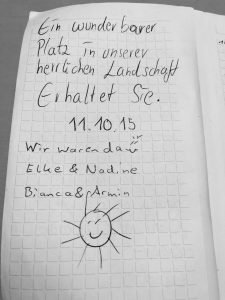 Ein wunderbarer
Platz in unserer
herrlichen Landschaft
Erhaltet Sie.
11.10.15
Wir waren da
Elke & Nadine
Bianca & Armin